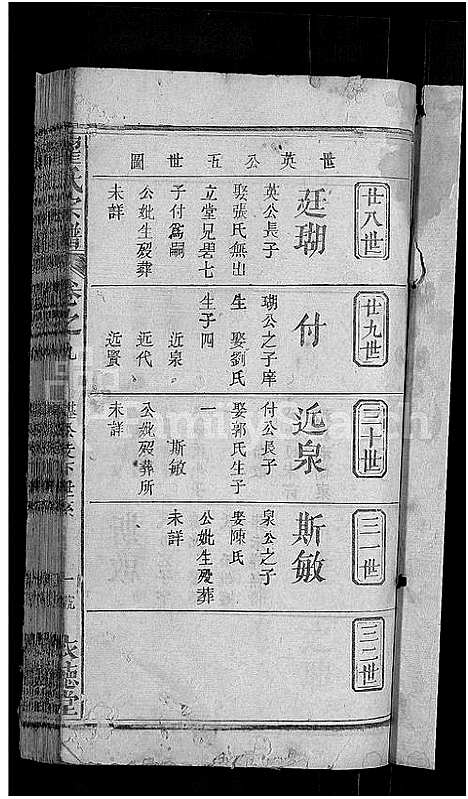 世英公五世圖
廿八世
廷瑚
英公長子
娶張氏無出
立堂兄碧七
子付爲嗣
公妣生殁葬
未詳
廿九世
付
瑚公之子庠
生 娶劉氏
生子四
近泉
近代
近賢
三十世
近泉
付公長子
娶郭氏生子
一
斯敏
公妣殁葬所
未詳
三一世
斯敏
泉公之子
娶陳氏
公妣生殁葬
未詳
三二世
氏宗譜
卷之九
一號
依德堂
FamilySearch